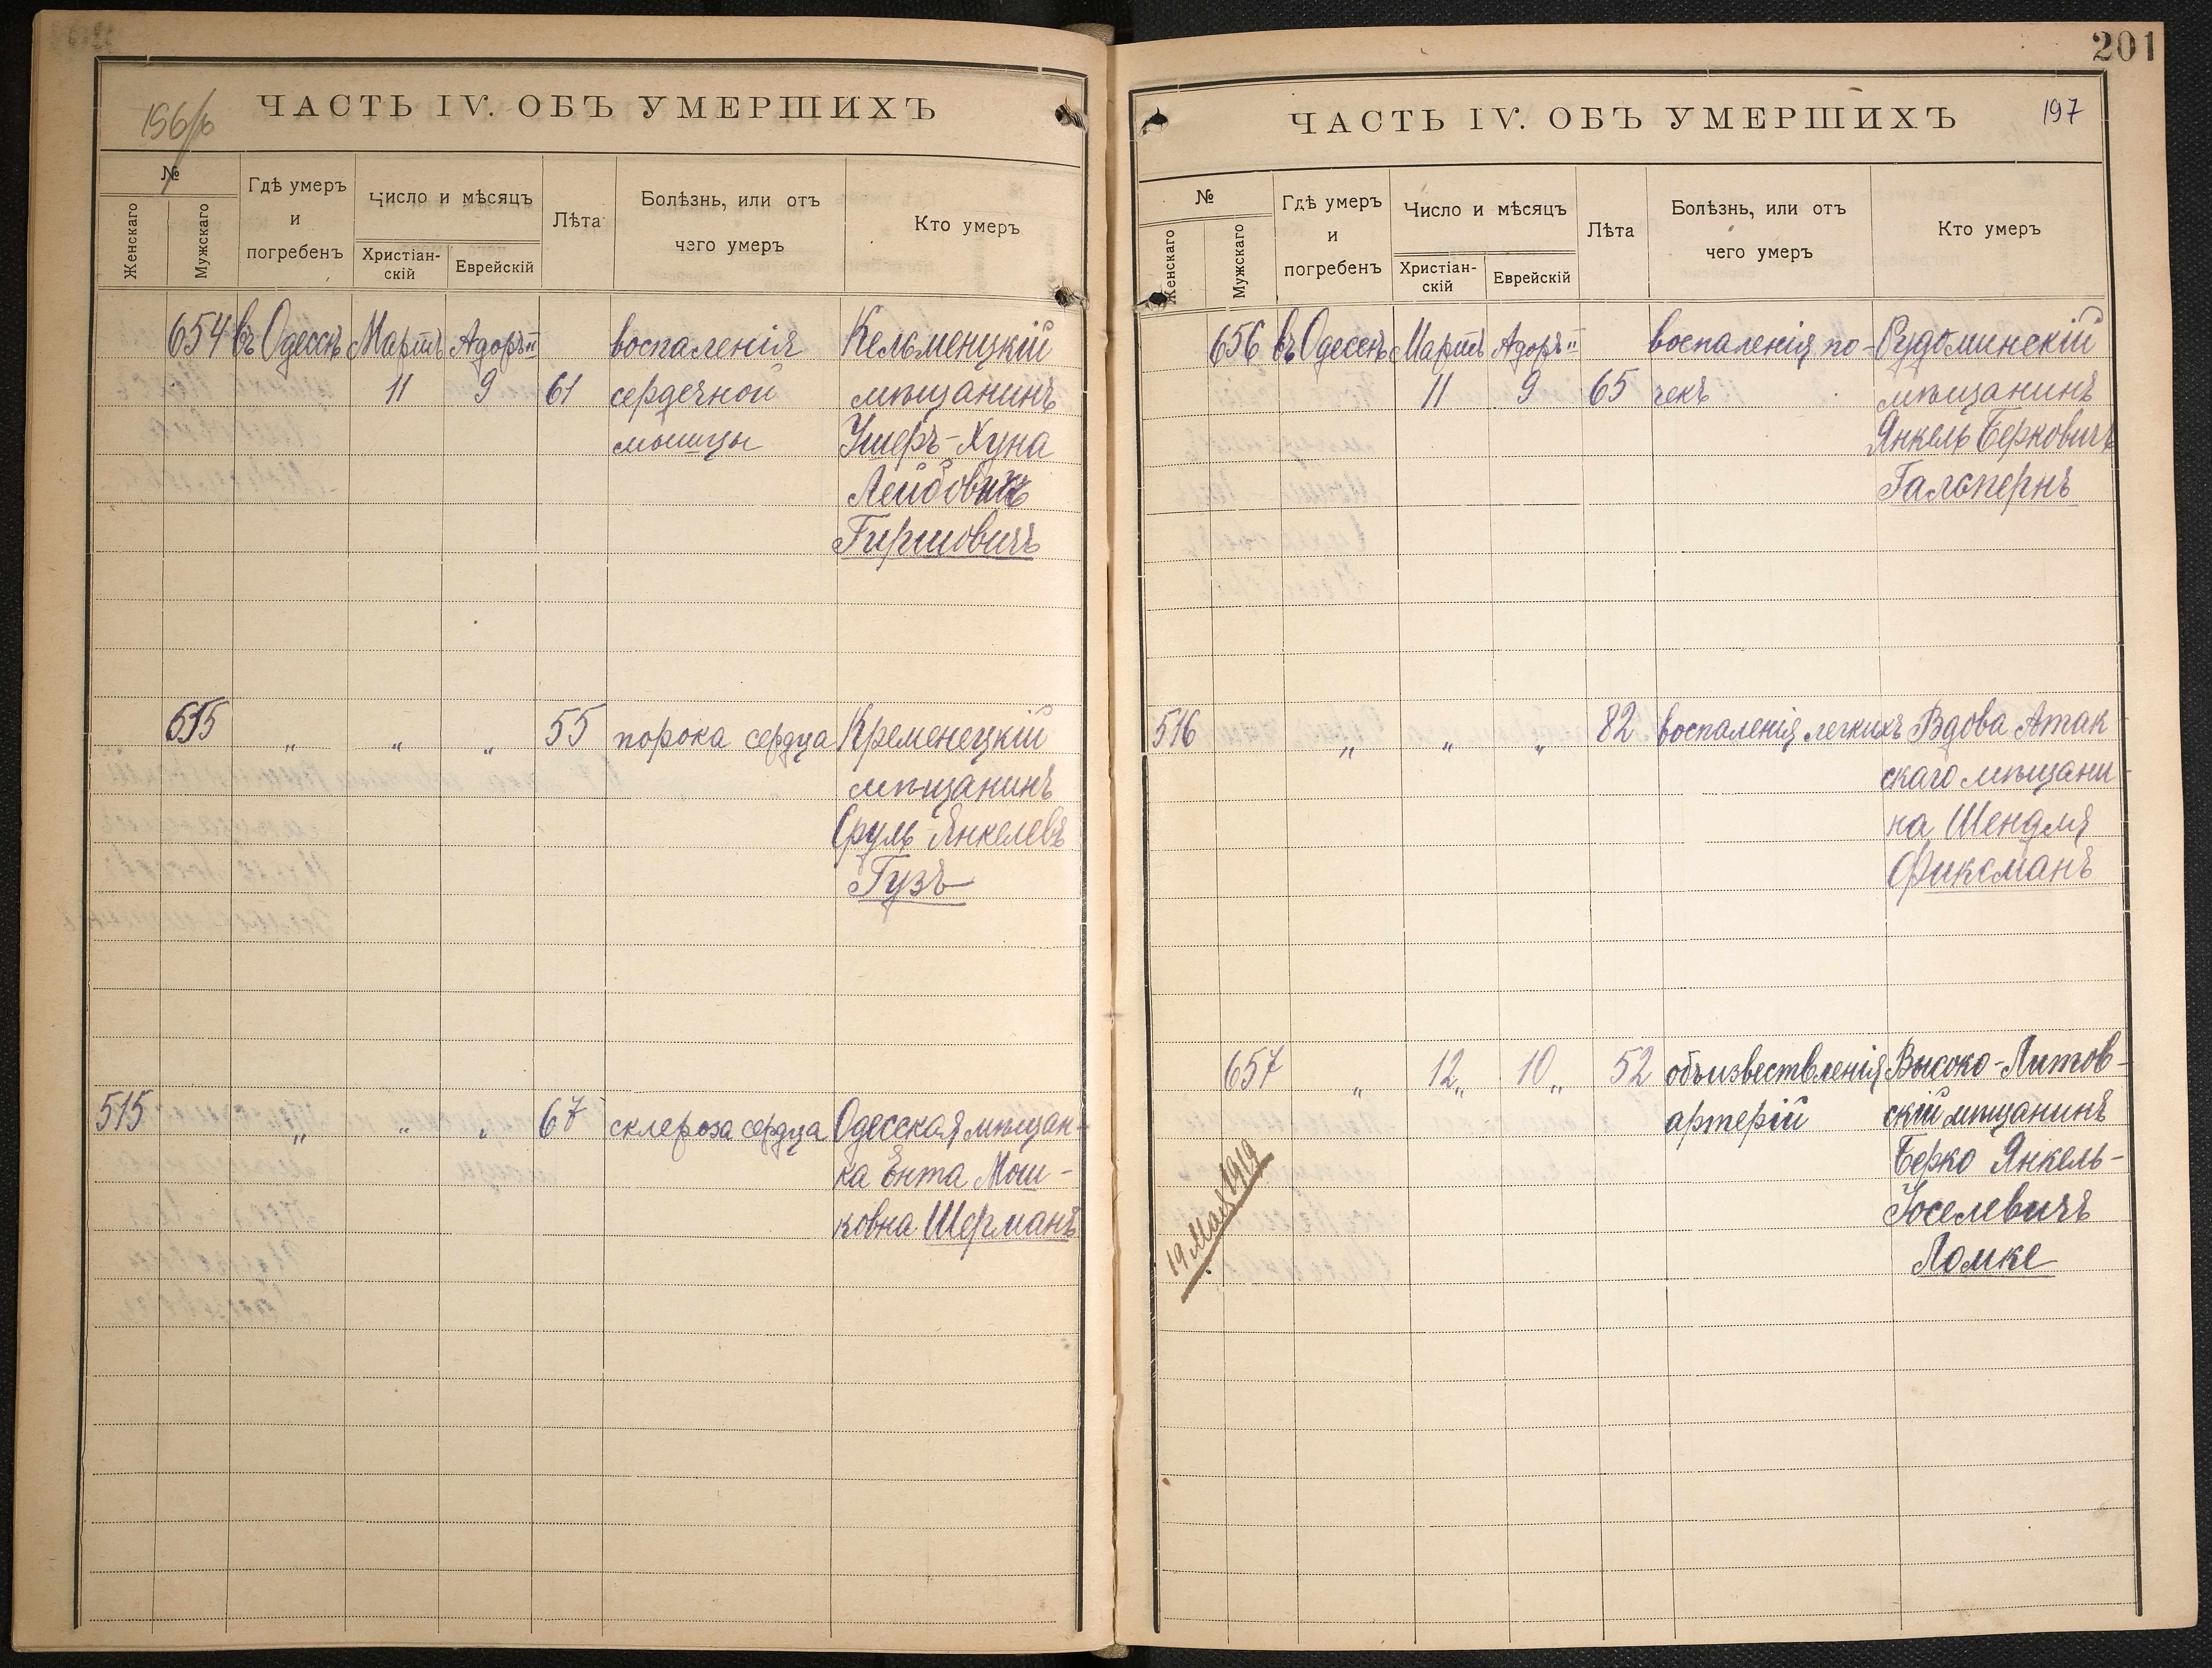 196/об
ЧАСТЬ IV. ОБЪ УМЕРШИХЪ
№
Женскаго
Мужскаго
Гдѣ умеръ
и
погребенъ
Число и мѣсяцъ
Христіан-
скій
Еврейскій
Лѣта
Болѣзнь, или отъ
чего умеръ
Кто умеръ
654 въ Одессѣ Мартъ Адоръ II воспаленія Кельменцкій
11 9 61 сердечной мѣщанинъ
мышцы Ушеръ-Хуна
Лейбовичъ
Гиршовичъ
655 „ „ „ 55 порока сердца Кременецкій
мѣщанинъ
Сруль Янкелевъ
Гузъ
515 „ „ „ 67 склероза сердца Одесская мѣщан-
ка Ента Мош-
ковна Шерманъ
201
197
ЧАСТЬ IV. ОБЪ УМЕРШИХЪ
№
Женскаго
Мужскаго
Гдѣ умеръ
и
погребенъ
Число и мѣсяцъ
Христіан-
скій
Еврейскій
Лѣта
Болѣзнь, или отъ
чего умеръ
Кто умеръ
656 въ Одессѣ Мартъ Адоръ II воспаленія по- Рудоминскій
11 9 65 чекъ мѣщанинъ
Янкель Берковичъ
Гальпернъ
516 „ „ „ 82 воспаленія легкихъ Вдова Атак-
скаго мѣщани-
на Шендля
Фиксманъ
657 „ 12 „ 10 „ 52 объизвествленія Высоко-Литов-
артерій скій мѣщанинъ
Берко Янкель-
Іоселевичъ
Ломке
19 Мая 1919